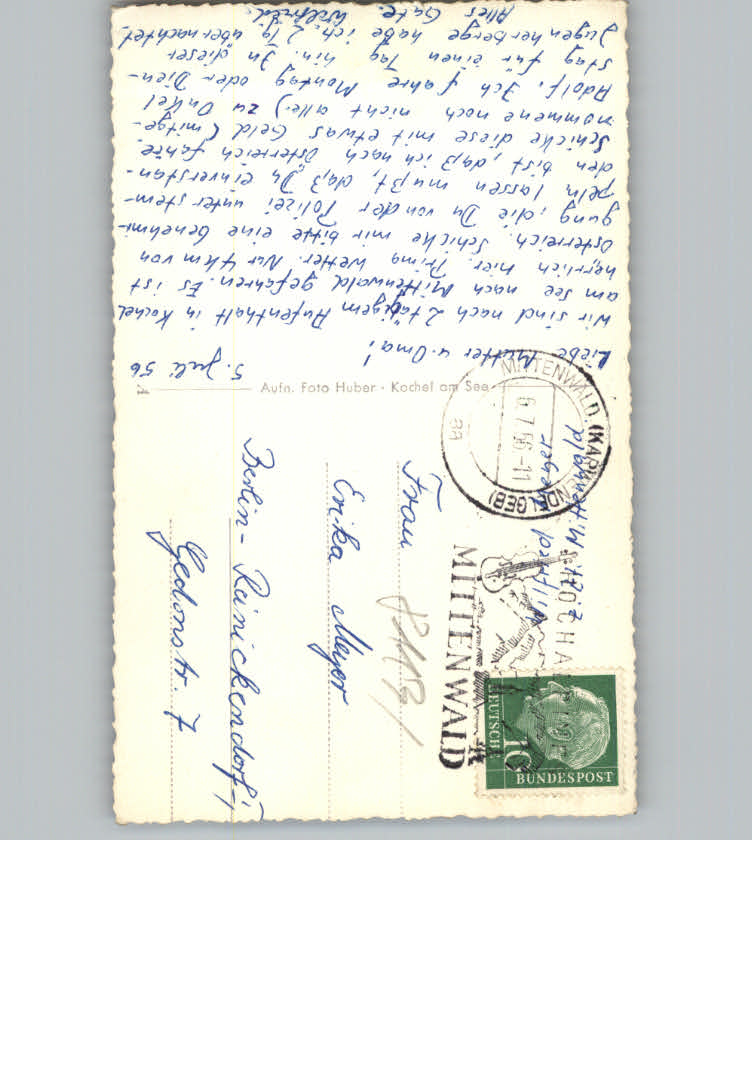 5. Juli 56
Liebe Mutter u. Oma!
Wir sind nach 2 tägigem Aufenthalt in Kochel
am See nach Mittenwald gefahren. Es ist
herrlich hier. Prima Wetter. Nur 4 km von
Österreich. Schicke mir bitte eine Genehmi-
gung, die Du von der Polizei unterstem-
peln lassen mußt, daß Du einverstan-
den bist, daß ich nach Österreich fahre.
Schicke diese mit etwas Geld (mitge-
nommene noch nicht alle) zu Onkel
Adolf. Ich fahre Montag oder Dien-
stag für einen Tag hin. In "dieser
Jugenherberge habe ich 2 Tg übernachtet
Alles Gute.
Wilfried.
Aufn. Foto Huber · Kochel am See
MITTENWALD (KARWENDELGEB)
6.7.56-11
aa
MITTENWALD
DEUTSCHE
BUNDESPOST
10
Wilfried Meyer
z. Zt. Mittenwald
Frau
Erika Meyer
Berlin-Reinickendorf-1
Gedonstr. 7